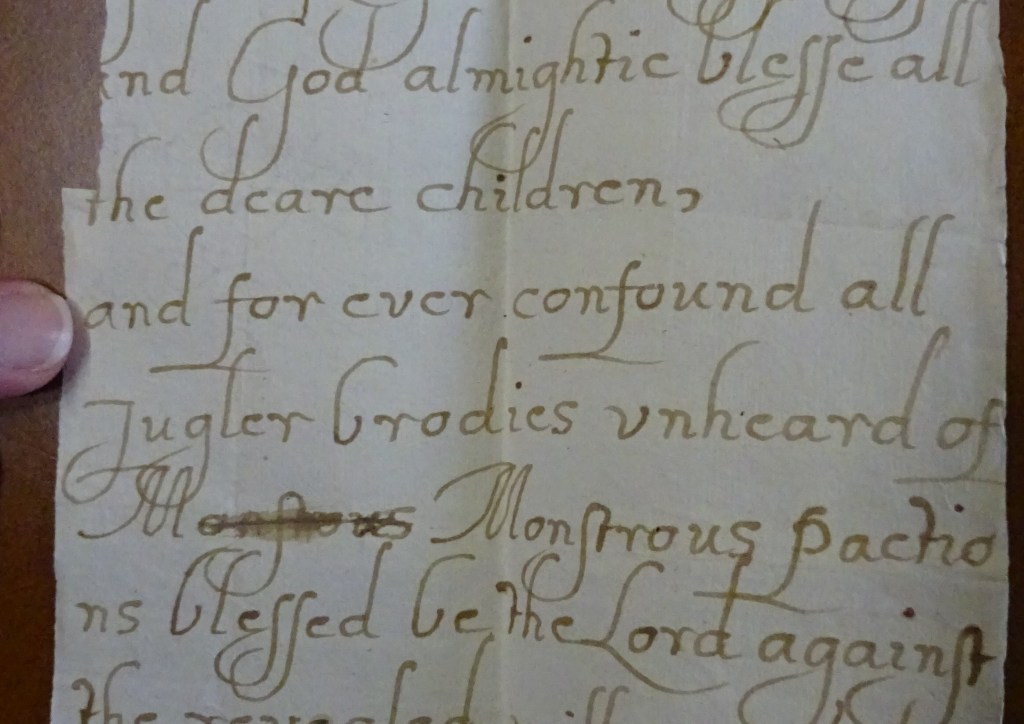 and God almightie blesse all
the deare children,
and for ever confound all
Jugler brodies vnheard of
Monstous Monstrous Pactio
ns blessed be the Lord against
the revealed will